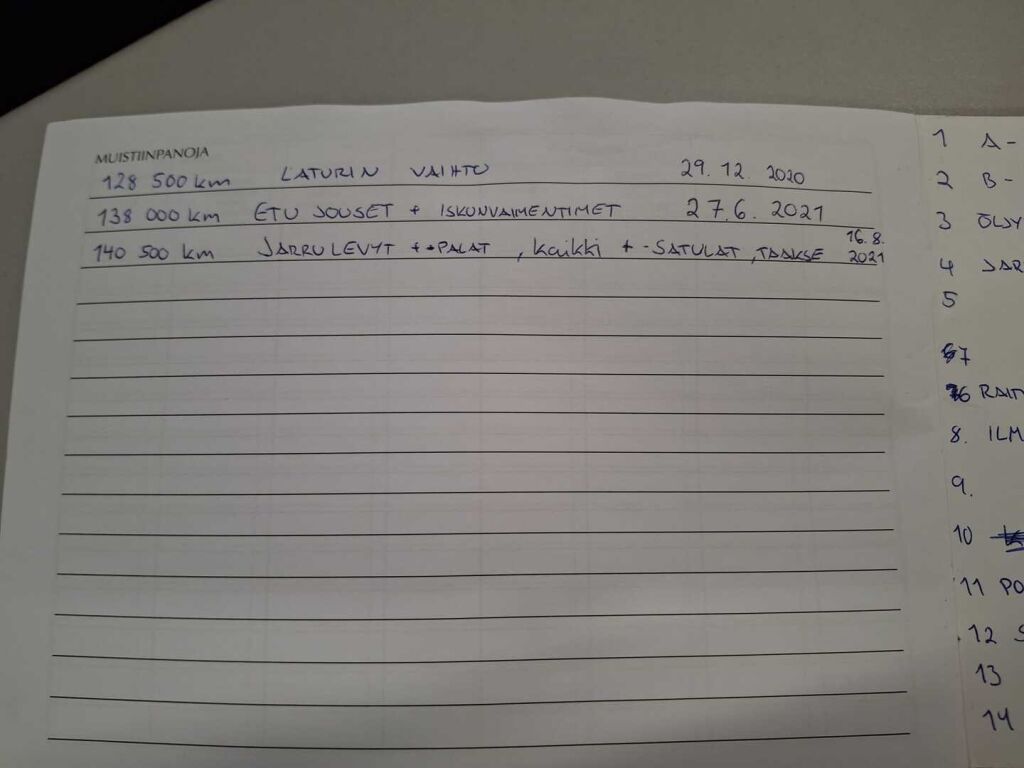 MUISTIINPANOJA
128 500 km LATURIN VAIHTO 29. 12. 2020
138 000 km ETU JOUSET + ISKUNVAIMENTIMET 27.6. 2021
140 500 km JARRULEVYT + -PALAT , Kaikki + -SATULAT, TAAKSE 16.8. 2021
1 A-
2 B-
3 ÖLJY
4 JAR
5
7
6 RAIT
8. ILM
9.
10
11 PO
12 S
13
14